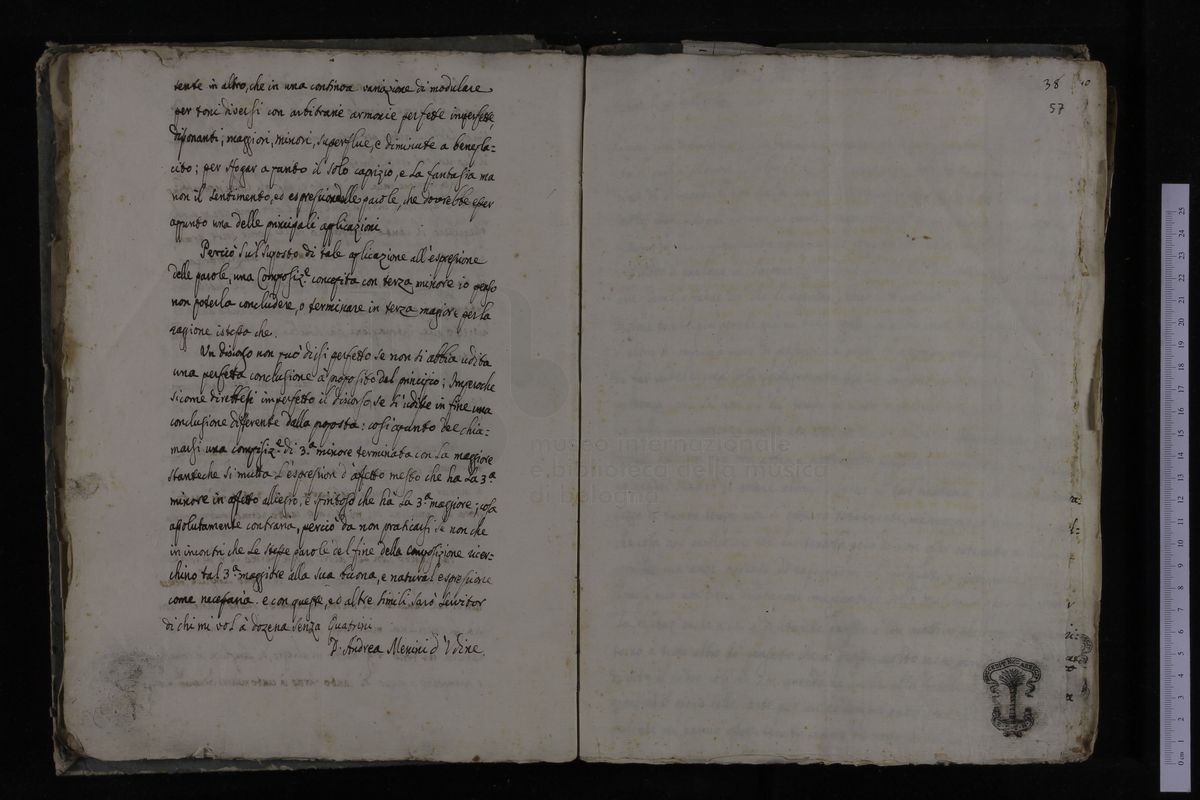 tente in altro, che in una continoa variazione di modulare
per toni diversi con arbitrarie armonie perfette imperfette,
dissonanti, maggiori, minori, superflue, e diminute a benepla=
cito; per sfogar a punto il solo caprizio, e la fantasia ma
non il sentimento, ed espressione delle parole, che dovrebbe esser
appunto una delle principali applicazioni
Perciò sul suposto di tale aplicazione all'espressione
delle parole, una Composiz.e concepita con terza minore io penso
non poterla concludere, o terminare in terza magiore per la
raggione istessa che.
Un discorso non può dirsi perfetto se non si abbia udita
una perfetta conclusione a proposito del principio; Imperoche
sicome direttesi imperfetto il discorso, se s'udisse in fine una
conclusione differente dalla proposta: così apunto dee chia=
marsi una composiz.e di 3.a minore terminata con la maggiore
stanteche si mutta l'espression d'affetto mesto che ha la 3.a
minore in affetto allegro, e spiritoso che hà la 3.a maggiore; cosa
assolutamente contraria, perciò da non praticarsi se non che
in incontri che le stesse parole e'l fine della composizione ricer=
chino tal 3.a maggiore alla sua buona, e natural espressione
come necessaria. e con queste, ed altre simili sarò servitor
di chi mi vol à dozena senza Quatrini
P. Andrea Menini d'Udine.
38
57
museo internazionale
e biblioteca della musica
di bologna